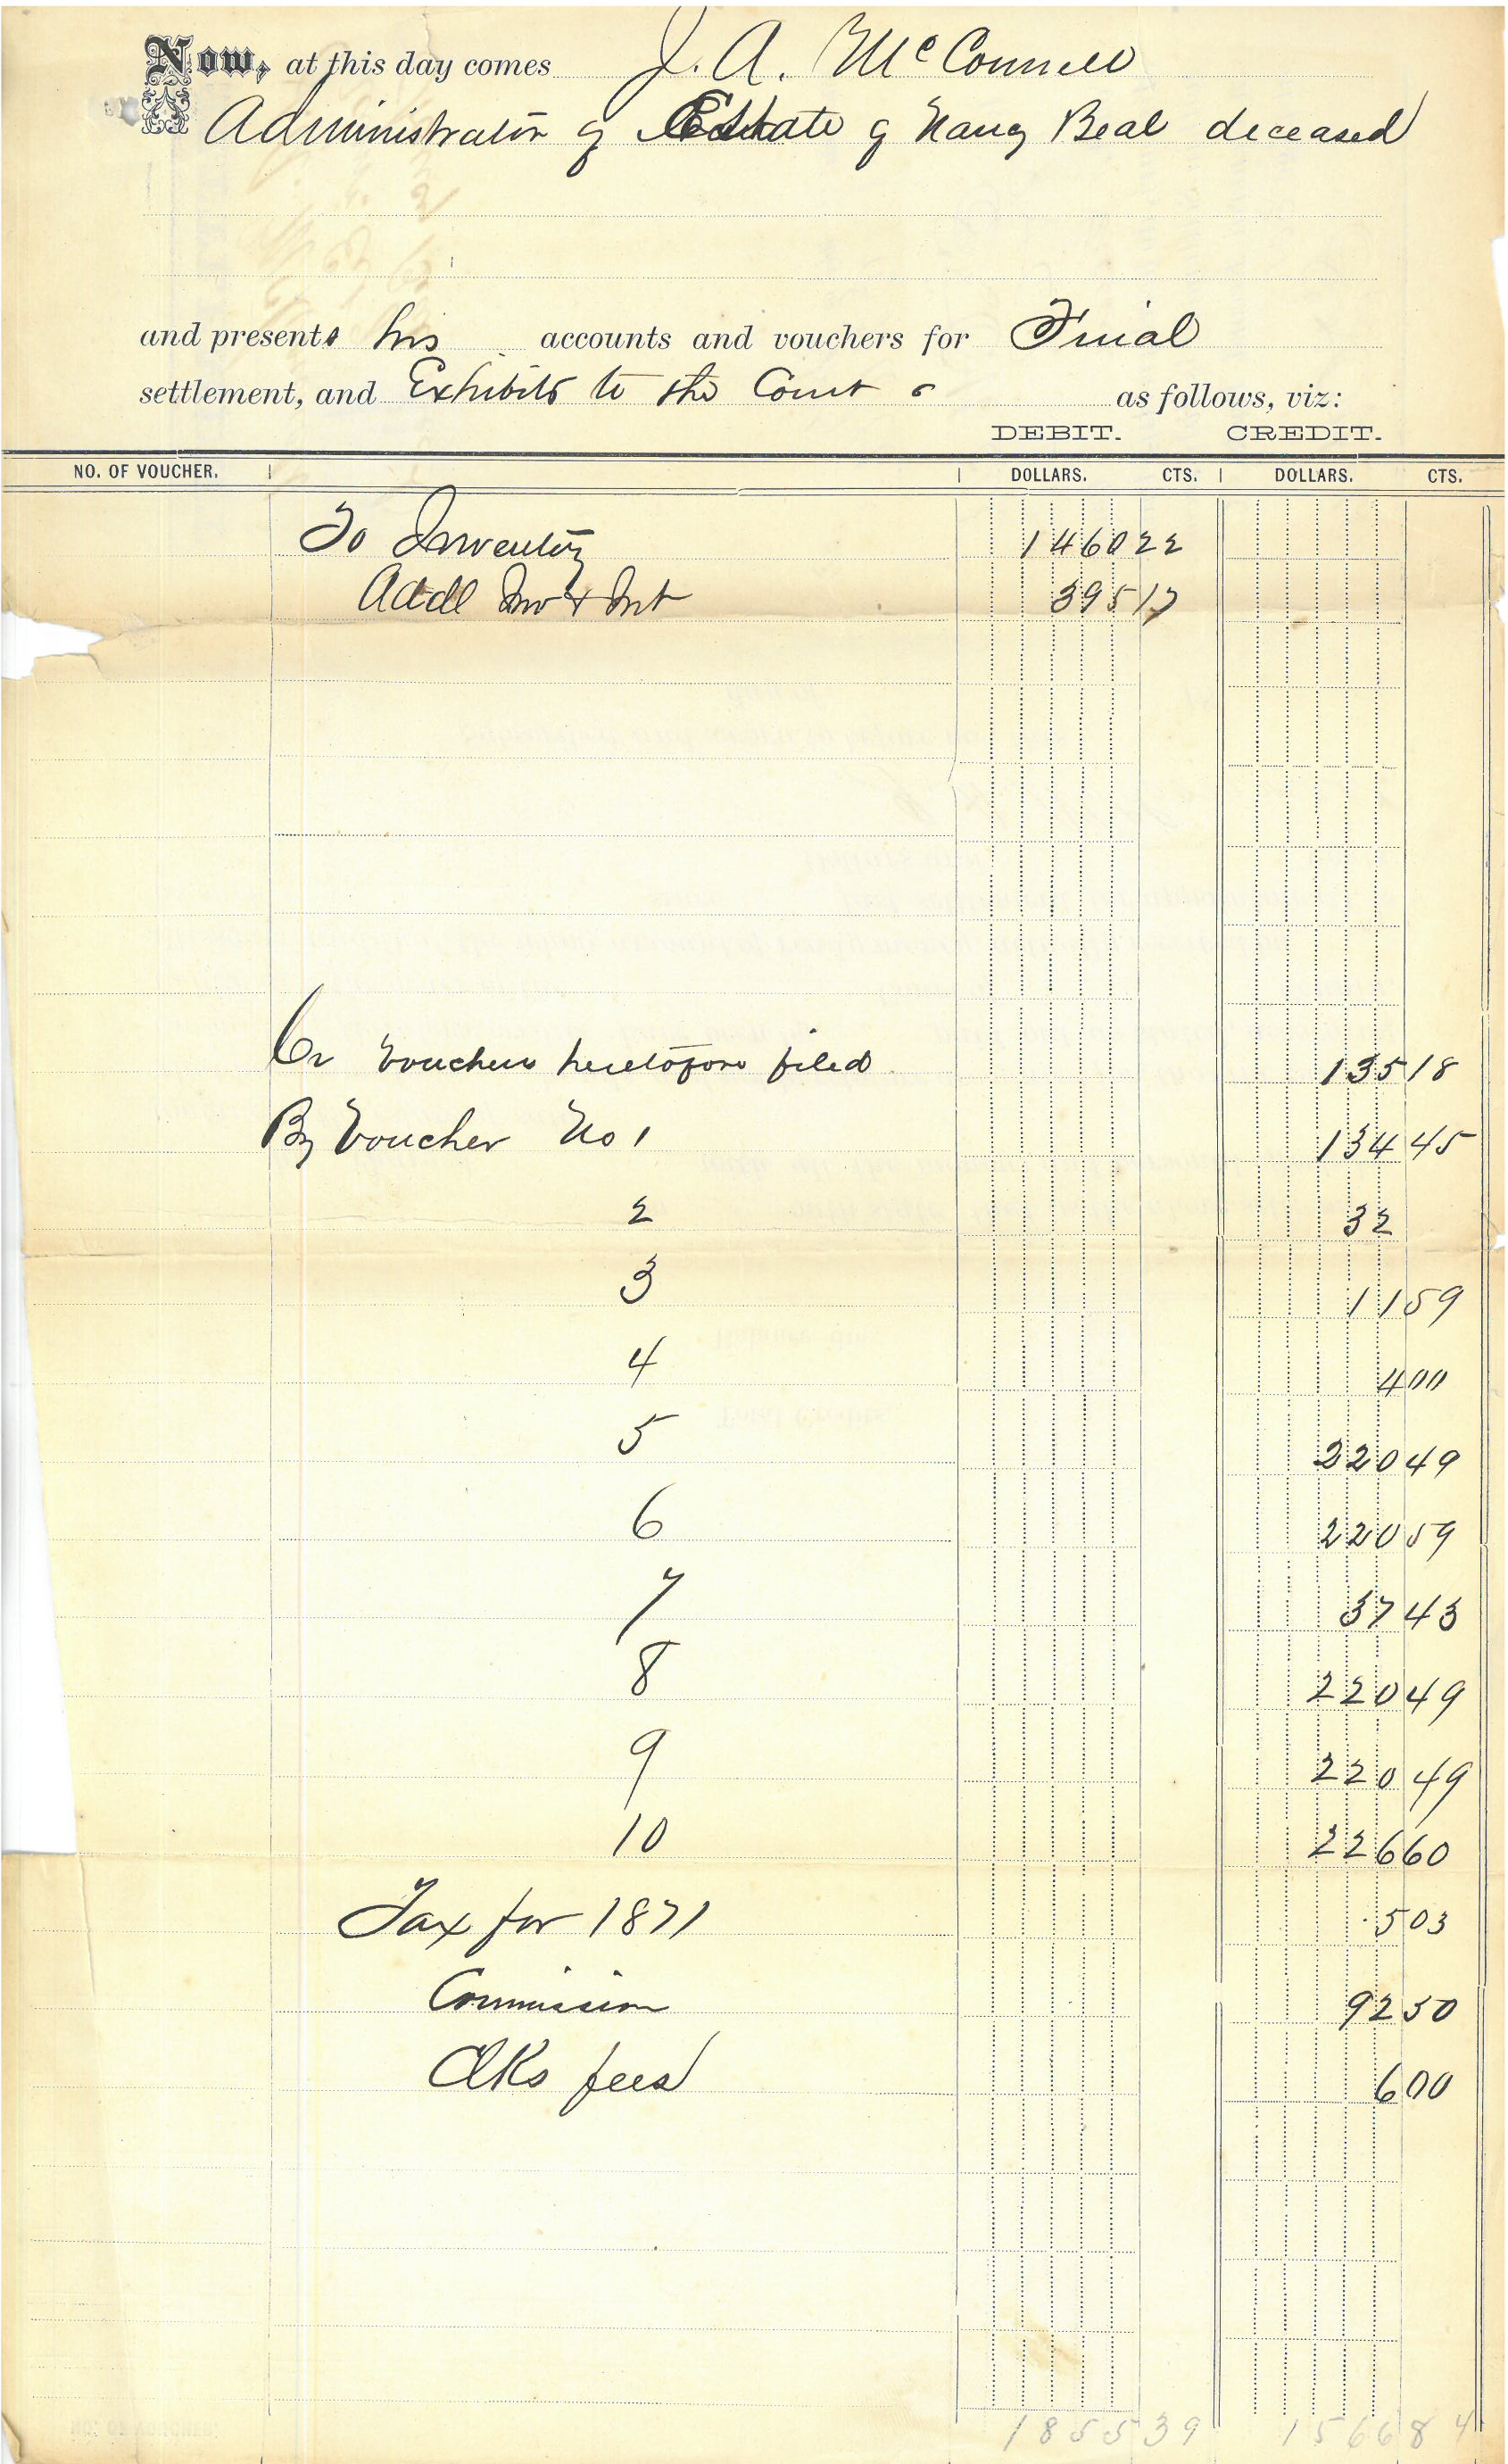 Now, at this day comes J. A. McConnell
Administrator of Estate of Nancy Beal deceased
and presents his accounts and vouchers for Final
settlement, and Exhibits to the Court as follows, viz:
DEBIT. CREDIT.
NO. OF VOUCHER. DOLLARS. CTS. DOLLARS. CTS.
To Inventory 1460 22
Addl Inv & Int 395 17
Cr Vouchers heretofore filed 135 18
By Voucher No 1 134 45
2 32
3 11 59
4 4 00
5 220 49
6 220 59
7 37 43
8 220 49
9 220 49
10 226 60
Tax for 1871 5 03
Commission 92 50
Clks fees 6 00
1855 39 1566 84